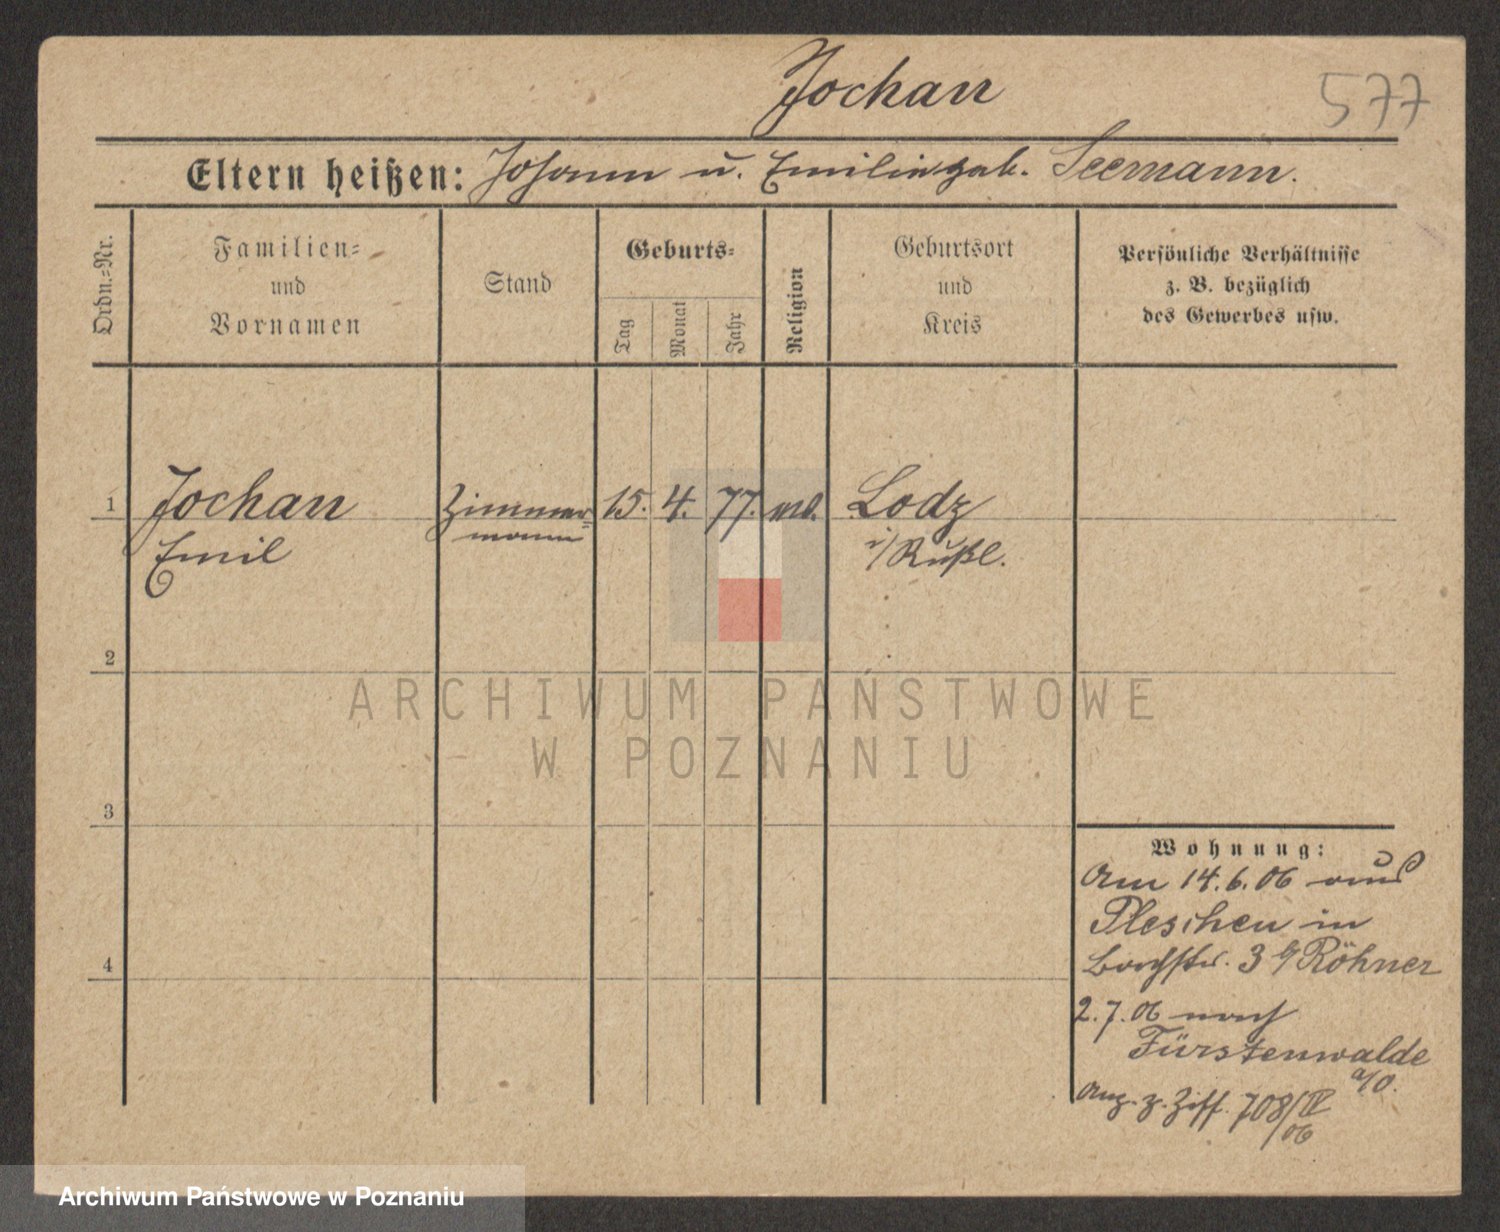 Jochan
577
Eltern heißen: Johann u. Emilie geb. Seemann.
Ordn.=Nr.
Familien=
und
Vornamen
Stand
Geburts=
Tag
Monat
Jahr
Religion
Geburtsort
und
Kreis
Persönliche Verhältnisse
z. B. bezüglich
des Gewerbes usw.
1 Jochan Zimmer= 15. 4. 77. Lodz
Emil mann i/Rußl.
2
3
4
Wohnung:
Am 14.6.06 aus
Pleschen in
Bachstr. 3 b/ Röhner
2.7.06 nach
Fürstenwalde
a/O.
Anz. z. Ziff. 708/IV
/06
ARCHIWUM PAŃSTWOWE
W POZNANIU
Archiwum Państwowe w Poznaniu